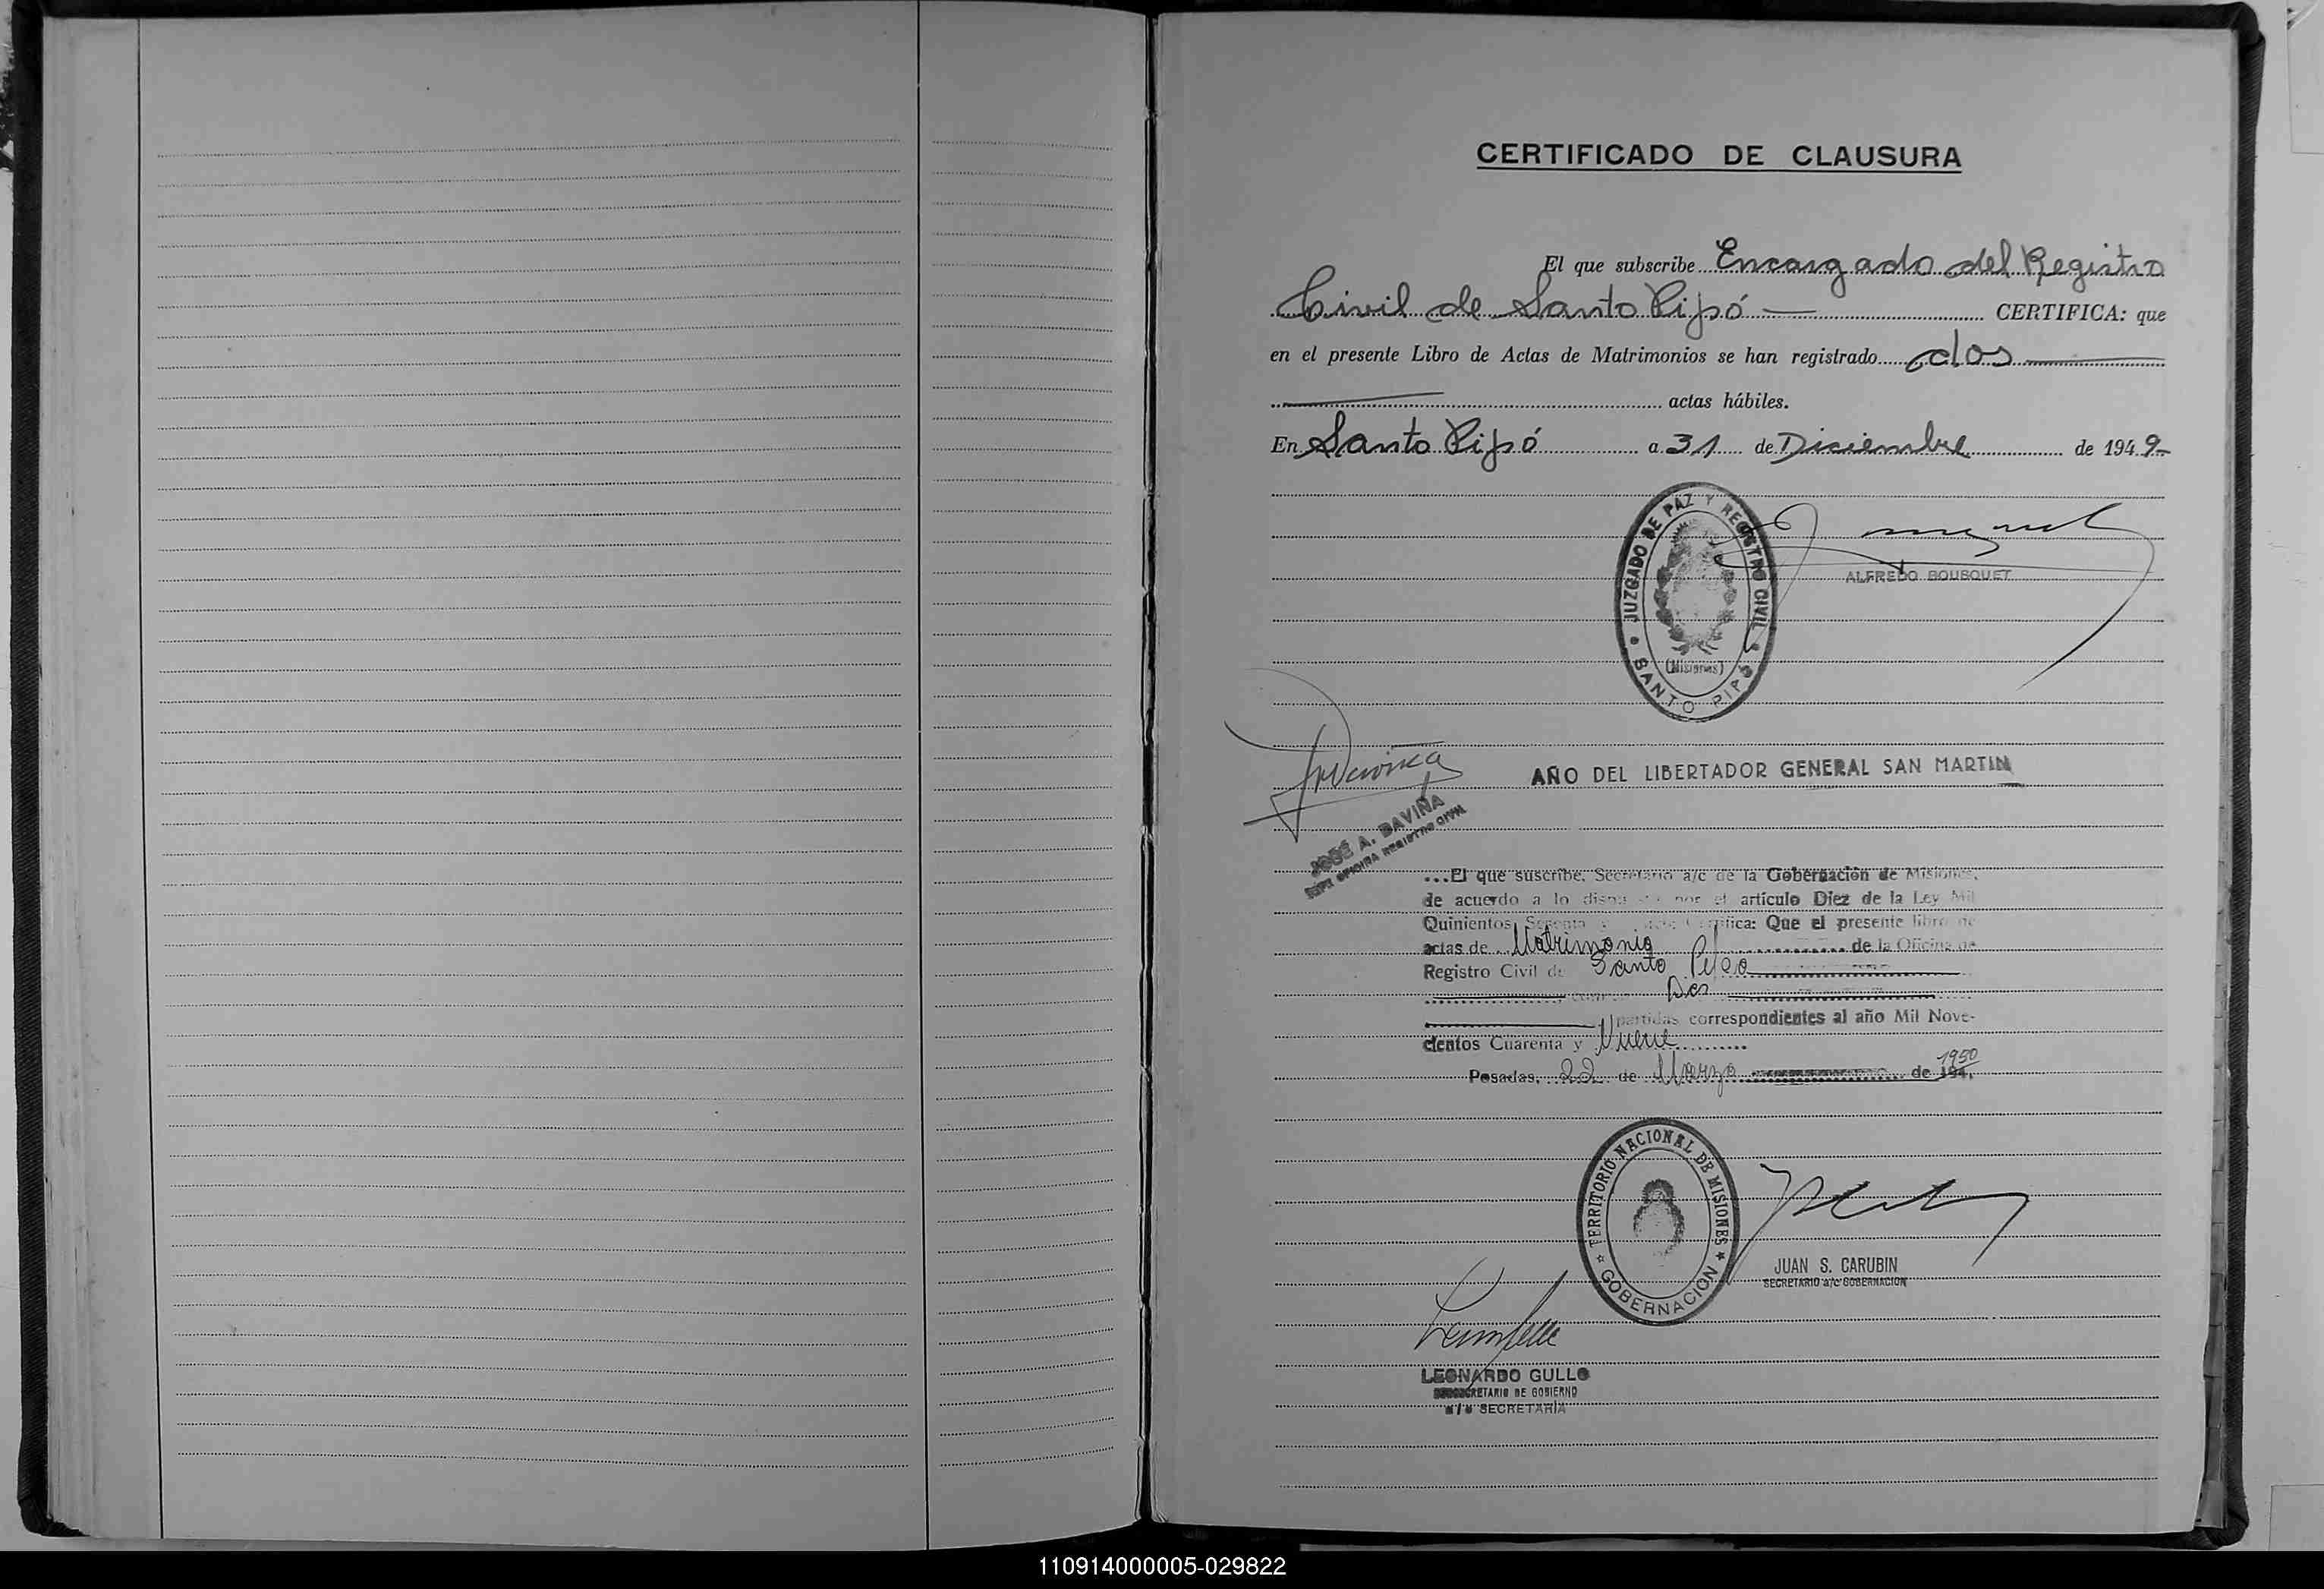 CERTIFICADO DE CLAUSURA
El que subscribe Encargado del Registro
Civil de Santo Pipó CERTIFICA: que
en el presente Libro de Actas de Matrimonios se han registrado dos
actas hábiles.
En Santo Pipó a 31 de Diciembre de 1949
JUZGADO DE PAZ Y REGISTRO CIVIL
(Misiones)
SANTO PIPÓ
ALFREDO BOUSQUET
AÑO DEL LIBERTADOR GENERAL SAN MARTIN
JOSÉ A. DAVIÑA
JEFE OFICINA REGISTRO CIVIL
...El que suscribe, Secretario a/c de la Gobernación de Misiones,
de acuerdo a lo por el artículo Diez de la Ley Mil
Quinientos Certifica: Que el presente libro de
actas de Matrimonio de la Oficina de
Registro Civil de Santo Pipó
Dos
partidas correspondientes al año Mil Nove-
cientos Cuarenta y Nueve
Posadas, 22 de Marzo de 194 1950
TERRITORIO NACIONAL DE MISIONES
GOBERNACION
JUAN S. CARUBIN
SECRETARIO a/c GOBERNACION
LEONARDO GULLO
SUBSECRETARIO DE GOBIERNO
a/c SECRETARÍA
110914000005-029822